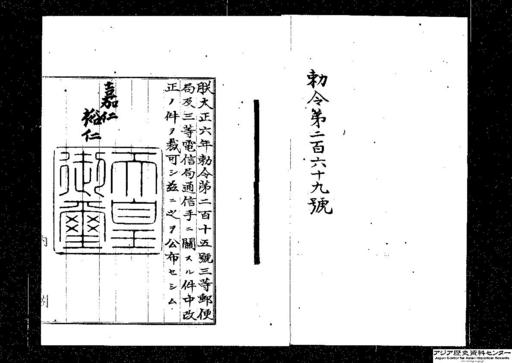 勅令第二百六十九號
朕大正六年勅令第二百十五號三等郵便
局及三等電信局通信手ニ關スル件中改
正ノ件ヲ裁可シ茲ニ之ヲ公布セシム
嘉仁
裕仁
天皇
御璽
内
閣
アジア歴史資料センター
Japan Center for Asian Historical Records